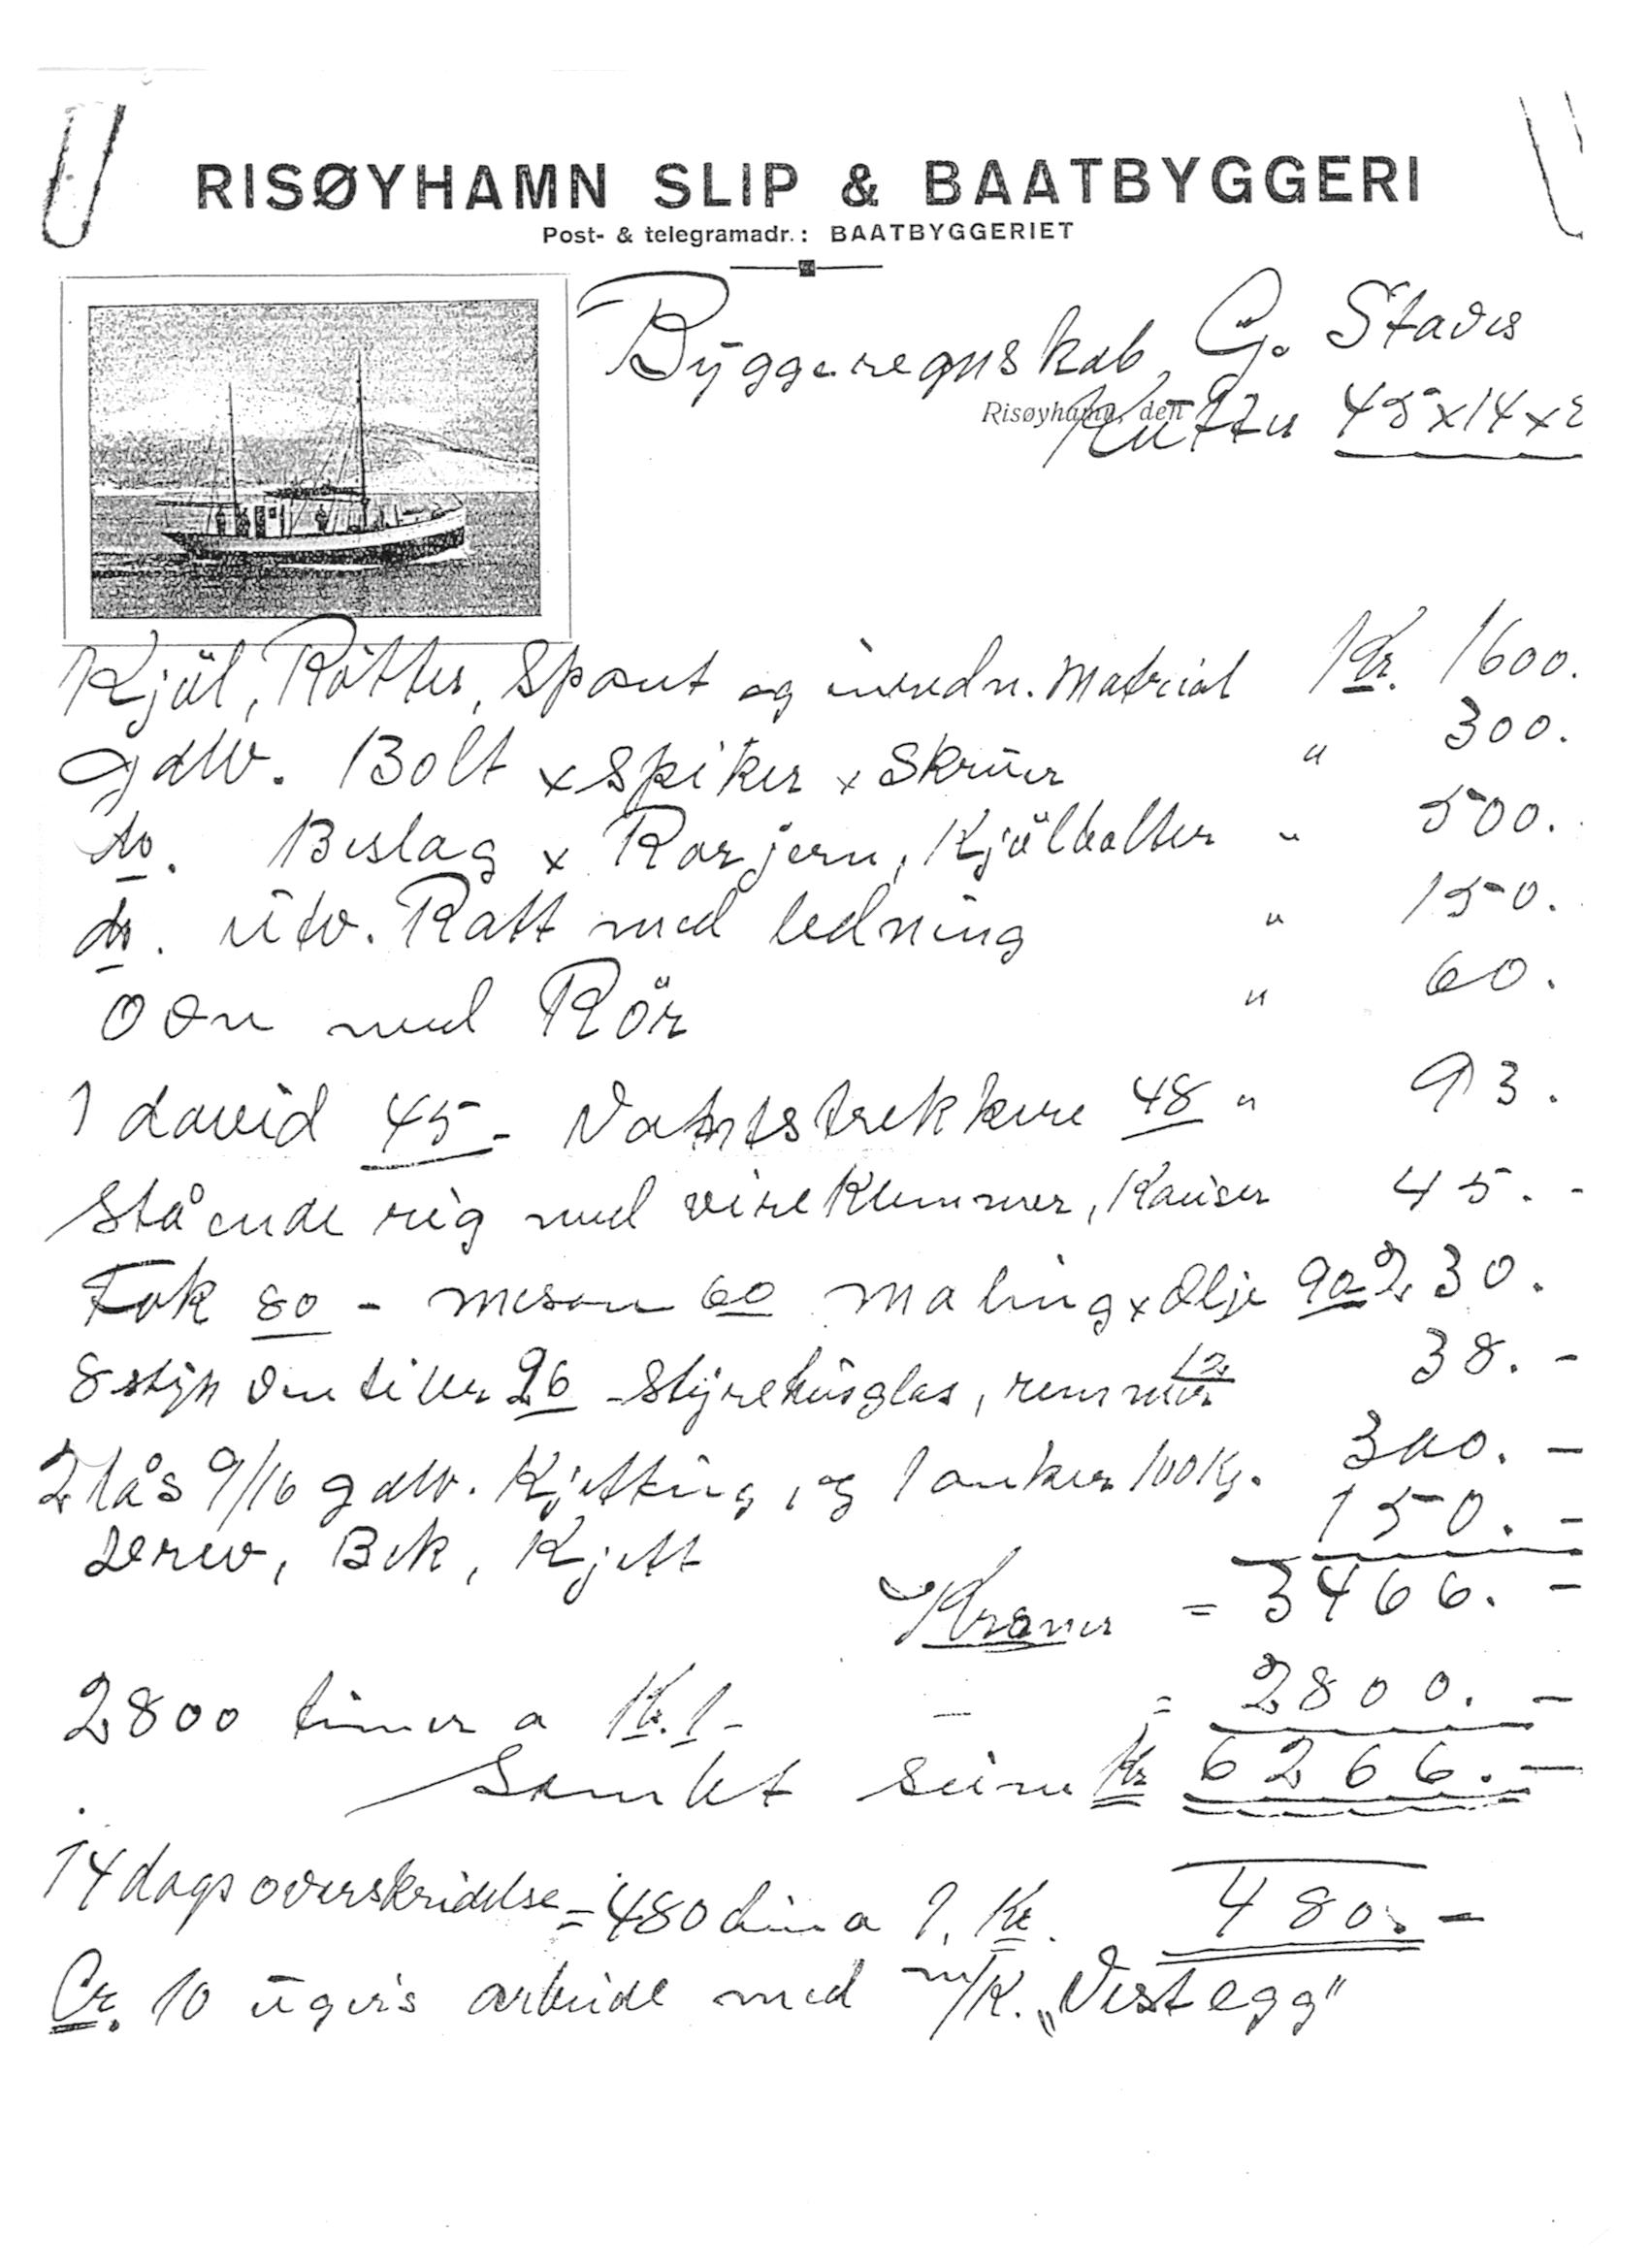 RISØYHAMN SLIP & BAATBYGGERI
Post- & telegramadr.: BAATBYGGERIET
Byggeregnskab G. Staves
Risøyhamn, den
Kutter 45x14x
Kjøl, Røtter, Spant og innredn. Matrial Kr. 1600.
galv. Bolt x spiker x Skruer " 300.
do. Beslag x Rorjern, Kjølbolter " 500.
do. utv. Ratt med ledning " 150.
Ovn med Rör " 60.
1 david 45- Vantstrekkere 48 " 93.
Stående rig med vireklemmer, Kauser 45.-
Fok 80 - mesan 60 maling x Olje 90 230.
8 styk ventiler 26 - Styrehusglas, remmer 12 38.-
2 lås 9/16 galv. Kjetting, og 1 anker 100 Kg. 300.-
Drev, Bek, Kjett 150.-
Kroner = 3466.-
2800 timer a Kr. 1- - = 2800.-
Samlet sum Kr 6266.-
14 dags overskridelse = 480 tim a 1. Kr. 480.-
Cr. 10 ugers arbeide med m/K. „Vestegg"